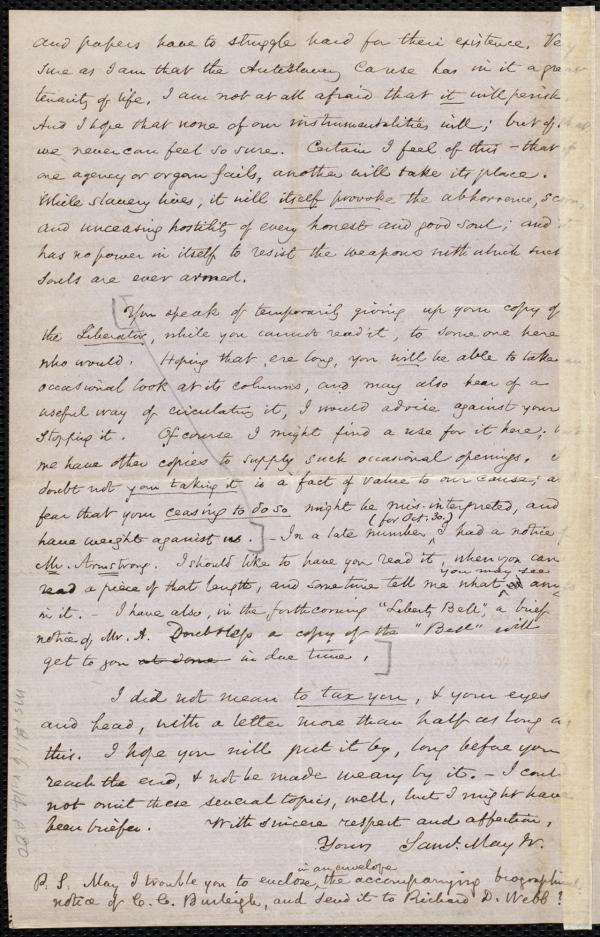 and papers have to struggle hard for their existence. Ve
sure as I am that the Antislavery Cause has in it a great
tenacity of life, I am not at all afraid that it will perish.
And I hope that none of our instrumentalities will; but of
we never can feel so sure. Certain I feel of this – that
one agency or organ fails, another will take its place.
While slavery lives, it will itself provoke the abhorrence, scorn,
and unceasing hostility of every honest and good soul; and
has no power in itself to resist the weapons with which such
souls are ever armed.
[You speak of temporarily giving up your copy of
the Liberator, while you cannot read it, to some one here
who would. Hoping that, ere long, you will be able to take
occasional look at its columns, and may also hear of a
useful way of circulating it, I would advise against your
stopping it. Of course I might find a use for it here;
we have other copies to supply such occasional openings. I
doubt not your taking it is a fact of value to our cause; a
fear that your ceasing to do so might be mis-interpreted, and
have weight against us.] – In a late number, (for Oct. 30.) I had a notice of
Mr. Armstrong. I should like to have you read it, when you can
read a piece of that length, and sometime tell me what you may see am
in it. – I have also, in the forthcoming "Liberty Bell", a brief
notice of Mr. A. Doubtless a copy of the "Bell" will
get to you at some in due time.]
I did not mean to tax you, & your eyes
and head, with a letter more than half as long as
this. I hope you will put it by, long before you
reach the end, & not be made weary by it. – I could
not omit these several topics, well, but I might have
been briefer. With sincere respect and affection,
Yours Saml. May Jr.
P.S. May I trouble you to enclose, in an envelope the accompanying biographical
notice of C. C. Burleigh, and send it to Richard D. Webb?